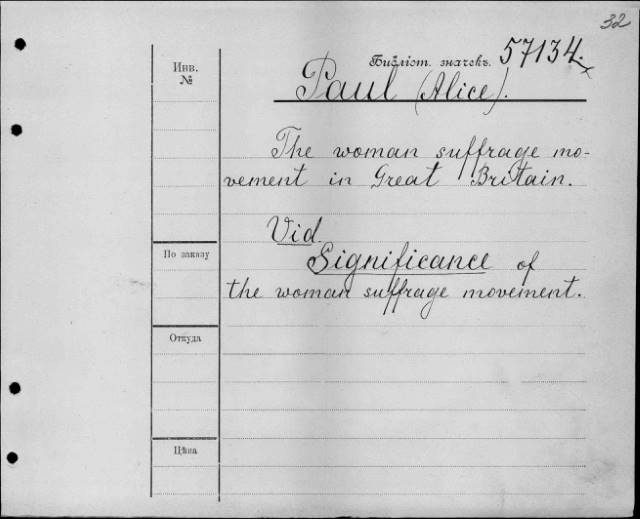 32
Инв.
№
Библіот. значекъ. 57134.
Paul (Alice).
The woman suffrage mo-
vement in Great Britain.
Vid
Significance of
the woman suffrage movement.
По заказу
Откуда
Цѣна